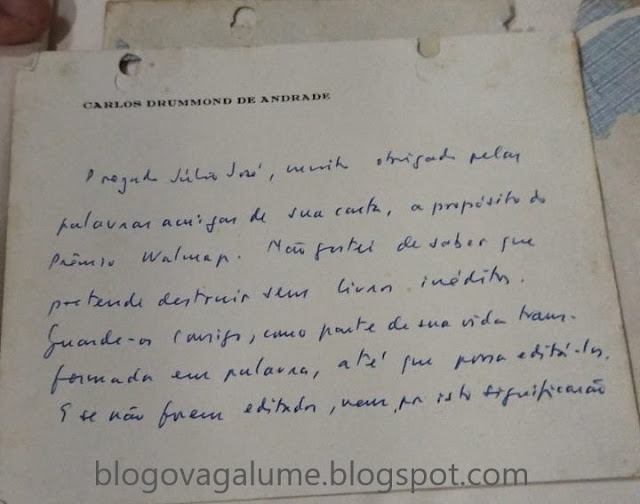 CARLOS DRUMMOND DE ANDRADE
Prezado Júlio José, muito obrigado pelas
palavras amigas de sua carta, a propósito do
Prêmio Walmap. Não gostei de saber que
pretende destruir seus livros inéditos.
Guarde-os consigo, como parte de sua vida trans-
formada em palavra, até que possa editá-los.
E se não forem editados, nem por isto significarão
blogovagalume.blogspot.com